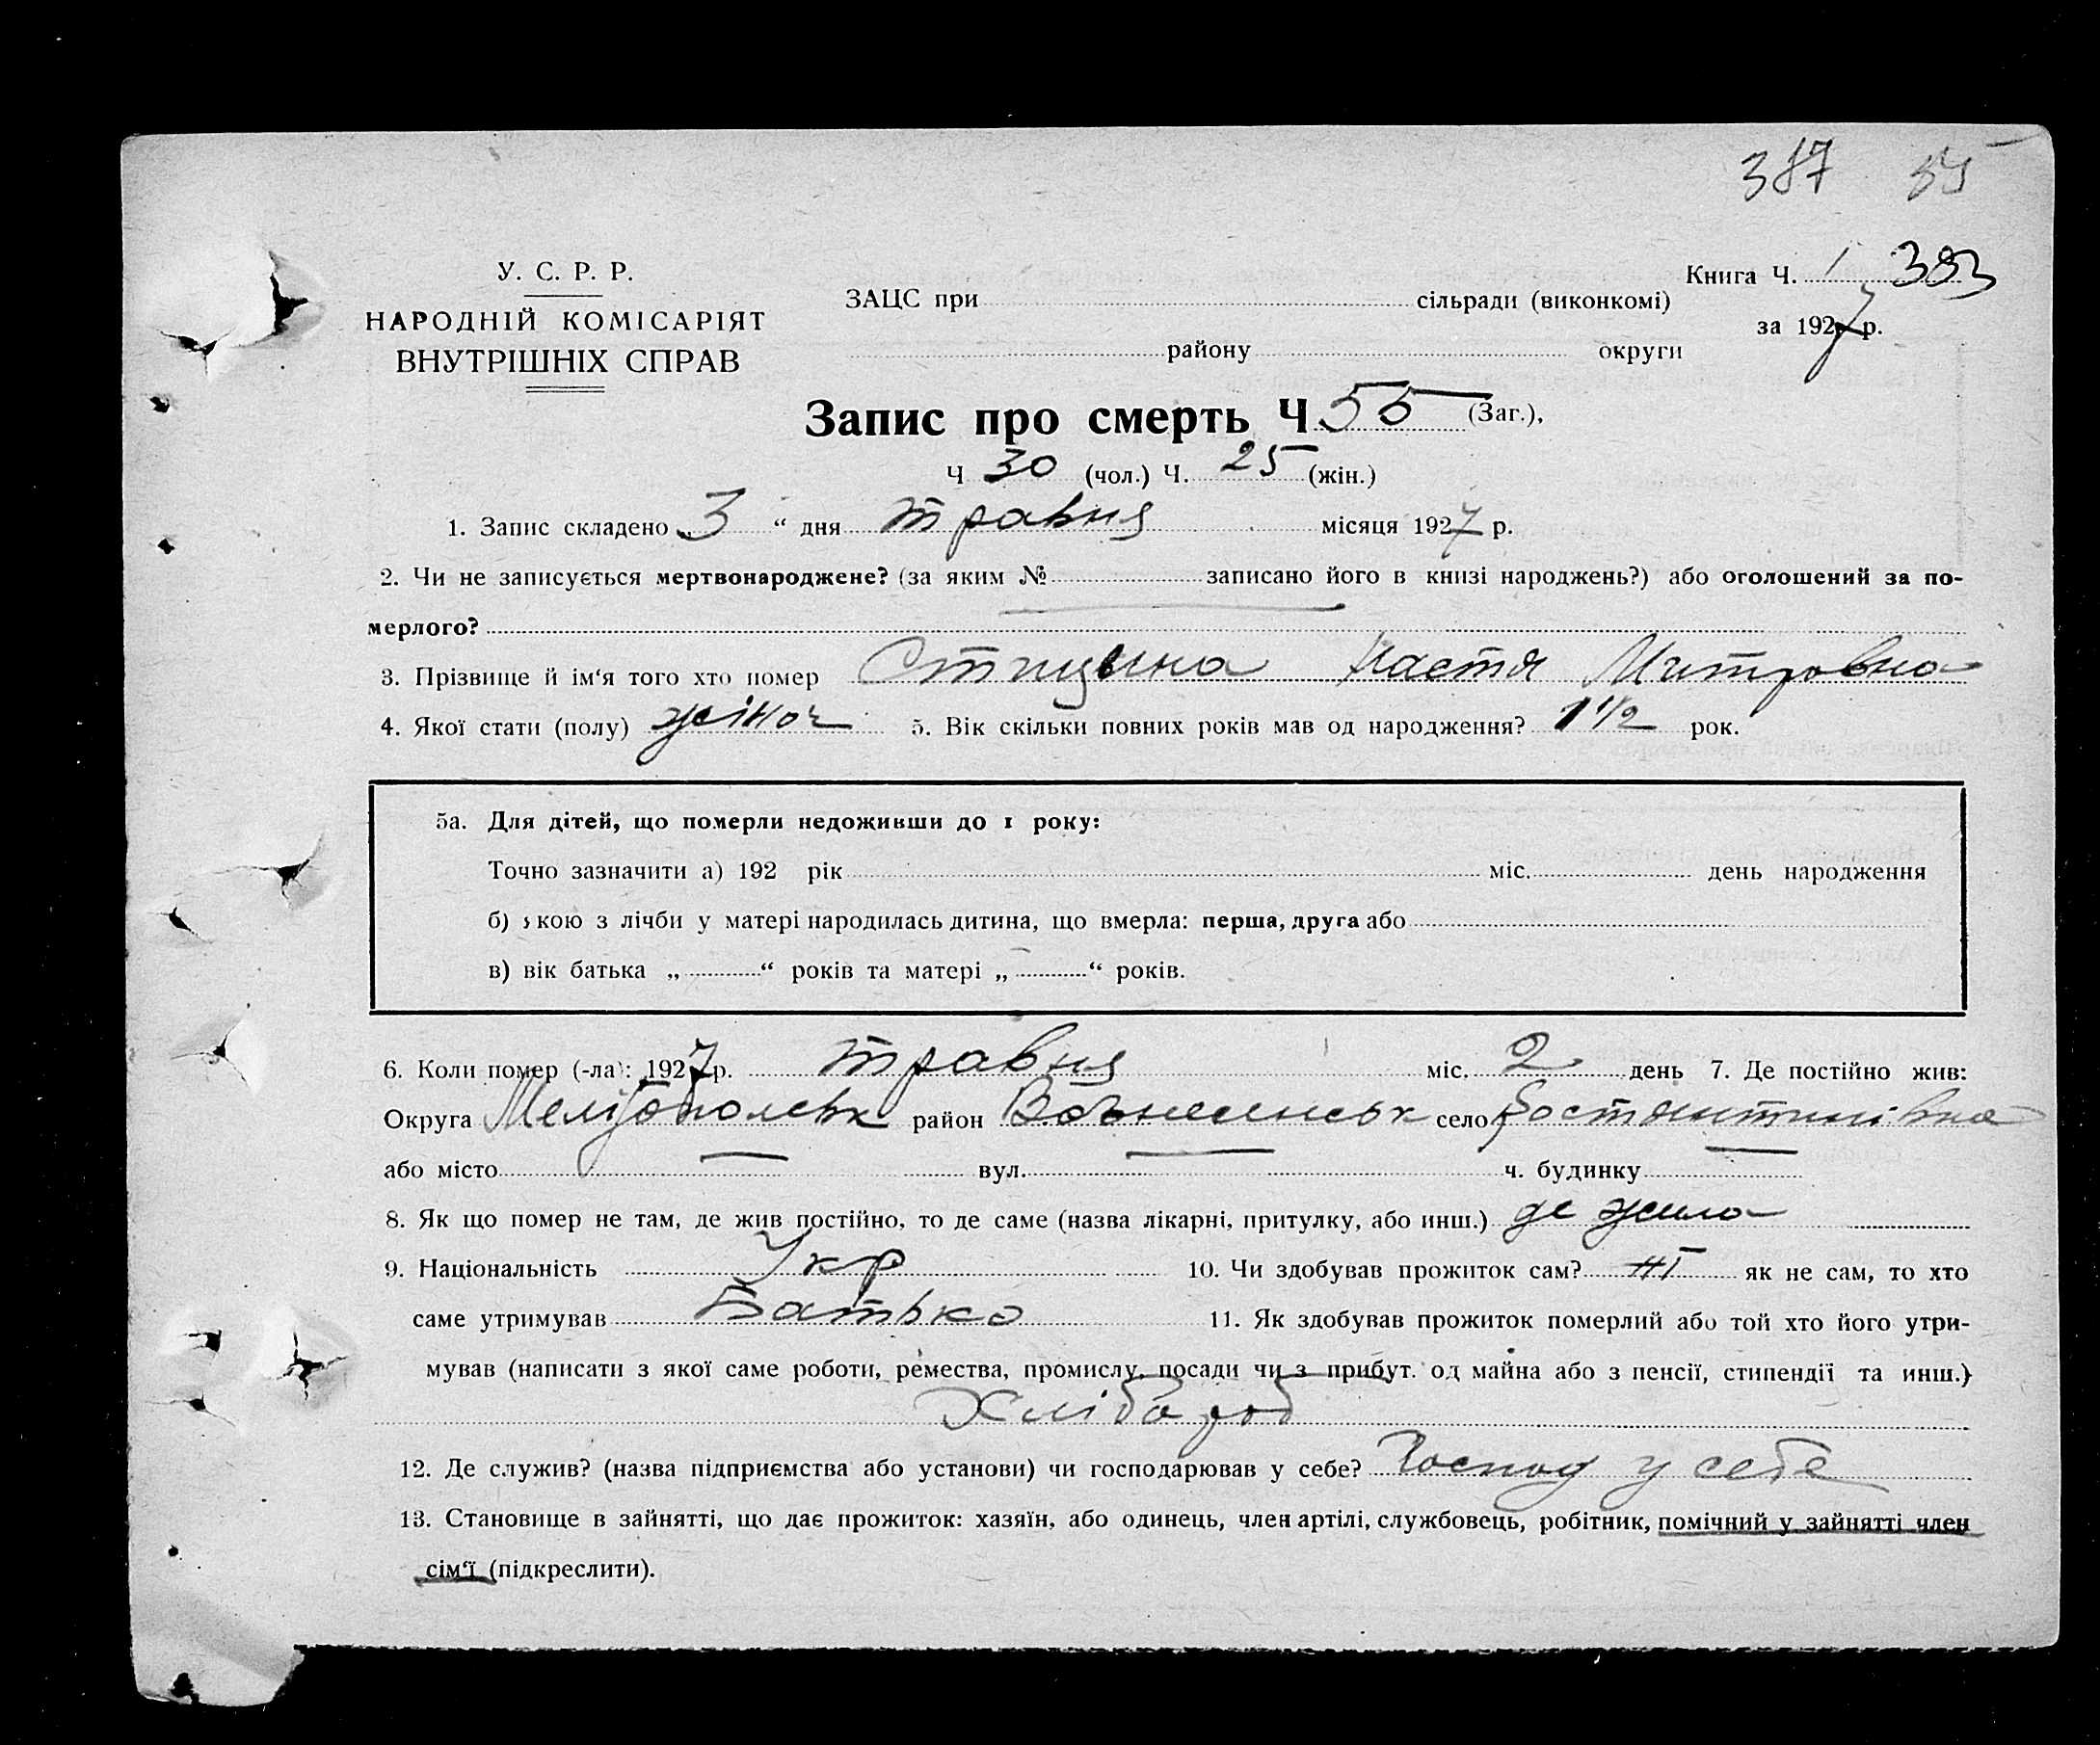 387
У. С. Р. Р.
НАРОДНІЙ КОМІСАРІЯТ
ВНУТРІШНІХ СПРАВ
ЗАЦС при сільради (виконкомі)
району округи
Книга Ч. 1 383
за 1927 р.
Запис про смерть Ч 55 (Заг.),
Ч 30 (чол.) Ч. 25 (жін.)
1. Запис складено „ 3 “ дня травня місяця 1927 р.
2. Чи не записується мертвонароджене? (за яким № записано його в книзі народжень?) або оголошений за по-
мерлого?
3. Прізвище й ім‘я того хто помер Настя Митровна
4. Якої стати (полу) жіноч 5. Вік скільки повних років мав од народження? 1 1/2 рок.
5а. Для дітей, що померли недоживши до 1 року:
Точно зазначити а) 192 рік міс. день народження
б) якою з лічби у матері народилась дитина, що вмерла: перша, друга або
в) вік батька „ “ років та матері „ “ років.
6. Коли помер (-ла): 1927 р. травня міс. 2 день 7. Де постійно жив:
Округа Мелітопольськ район Вознесенськ село Костянтинівка
або місто — вул. — ч. будинку —
8. Як що помер не там, де жив постійно, то де саме (назва лікарні, притулку, або инш.) де жила
9. Національність Укр 10. Чи здобував прожиток сам? ні як не сам, то хто
саме утримував Батько 11. Як здобував прожиток померлий або той хто його утри-
мував (написати з якої саме роботи, ремества, промислу, посади чи з прибут. од майна або з пенсії, стипендії та инш.)
Хлібороб
12. Де служив? (назва підприємства або установи) чи господарював у себе? Господ у себе
13. Становище в зайнятті, що дає прожиток: хазяїн, або одинець, член артілі, службовець, робітник, помічний у зайнятті член
сім‘ї (підкреслити).